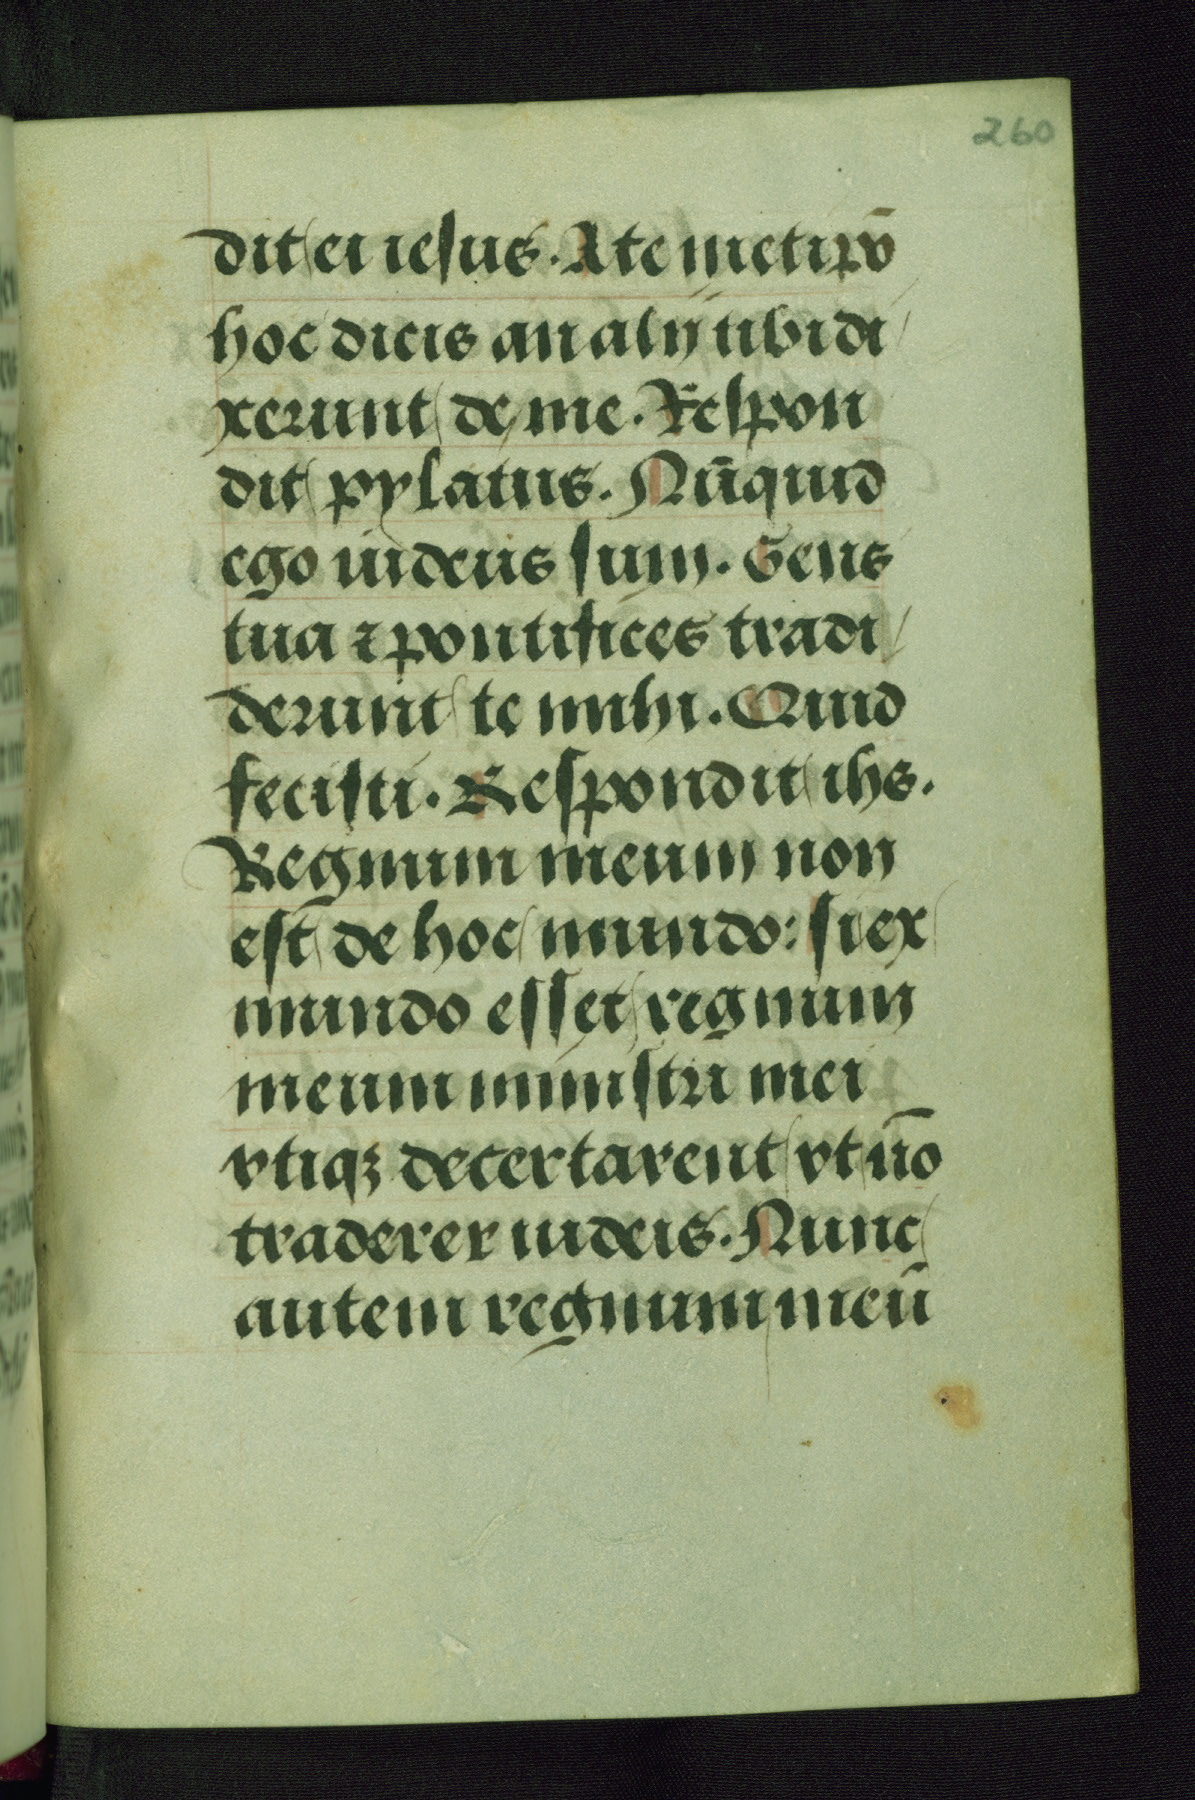 260
dit ei iesus. A te metipō
hoc dicis an alij tibi di
xerunt de me. Respon
dit pylatus. Nūquid
ego iudeus sum. Gens
tua ⁊ pontifices tradi
derunt te mihi. Quid
fecisti. Respondit ihs.
Regnum meum non
est de hoc mundo: si ex
mundo esset regnum
meum ministri mei
vtiqꝫ decertarent vt nō
traderer iudeis. Nunc
autem regnum meū